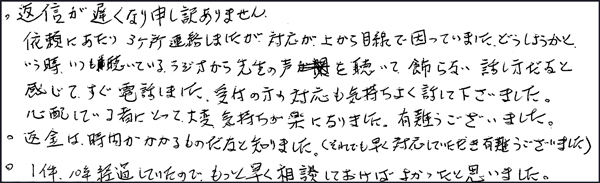 。返信が遅くなり申し訳ありません。
依頼にあたり3ヶ所連絡しましたが、対応が上から目線で困っていました、どうしようかと
いう時、いつも聴いているラジオから先生の声を聴いて、飾らない話し方だなと
感じて、すぐ電話しました。受付の方の対応も気持ちよく話して下さいました。
心配している者にとって大変気持ちが楽になりました。有難うございました。
。返金は、時間がかかるものだなと知りました。(それでも早く対応していただき有難うございました)
。1件、10年経過していたので、もっと早く相談しておけばよかったと思いました。